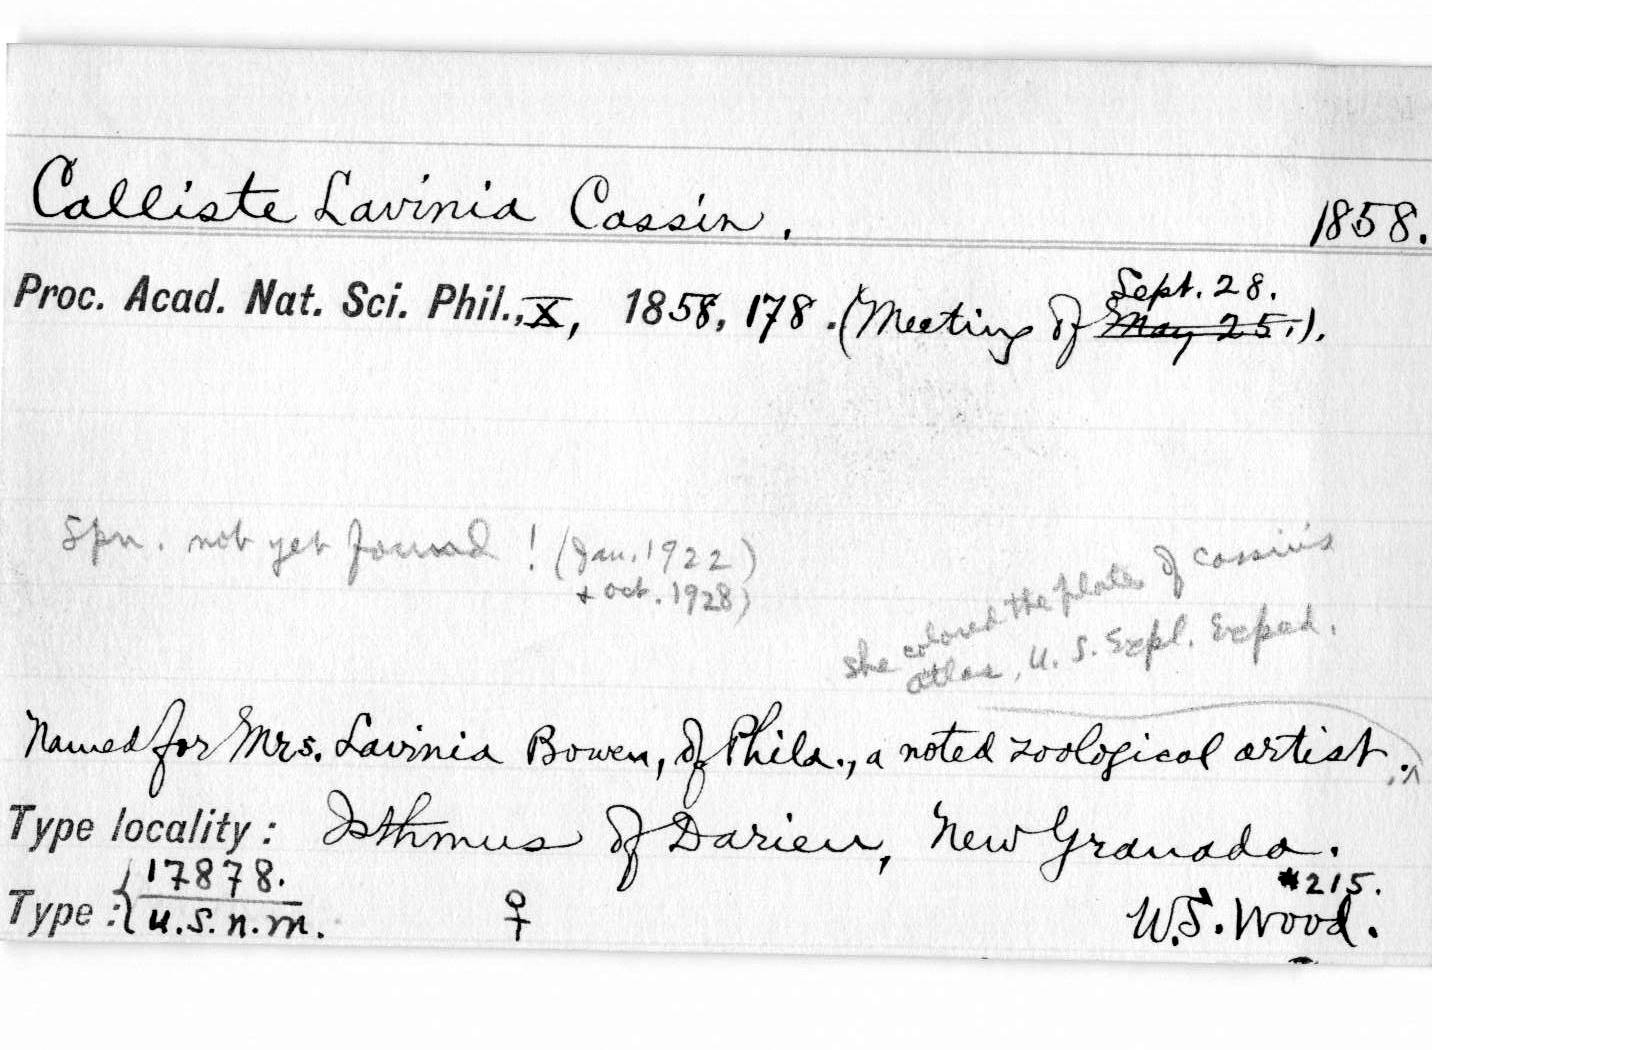 Calliste Lavinia Cassin. 1858.
Proc. Acad. Nat. Sci. Phil., X, 1858, 178. (Meeting of Sept. 28. May 25.).
Spn. not yet found! (Jan. 1922)
+ Oct. 1928)
she colored the plates of Cassin's
atlas, U. S. Expl. Exped.
Named for Mrs. Lavinia Bowen, of Phila., a noted zoological artist.
Type locality: Isthmus of Darien, New Granada.
17878. #215.
Type: U.S.N.M. ♀ W.S. Wood.